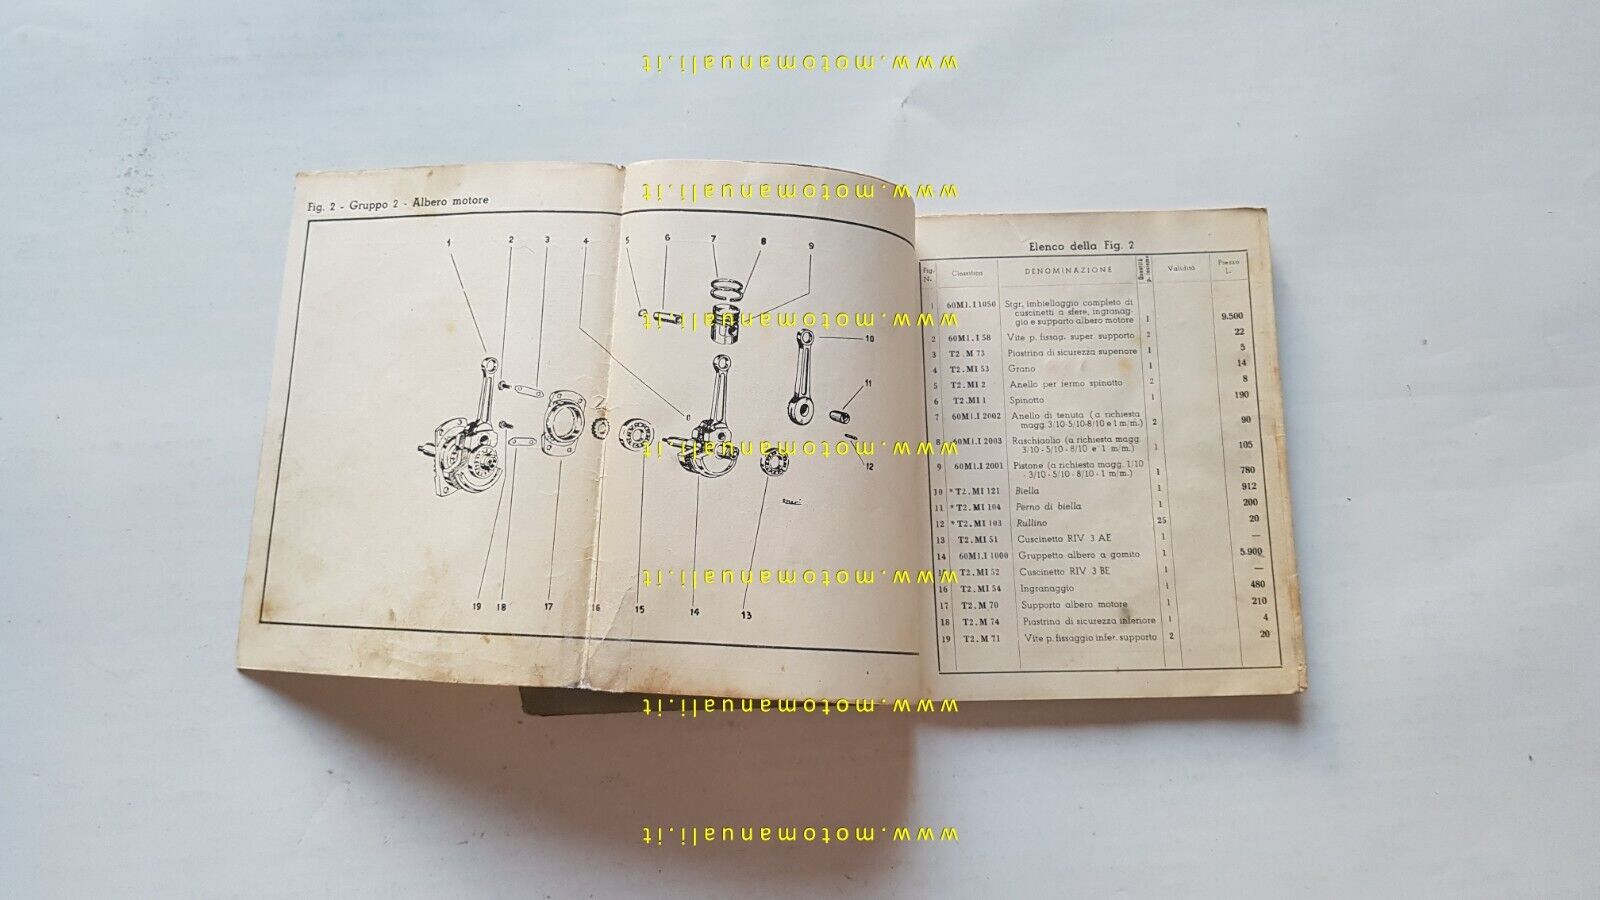 www.motomanuali.it
Fig. 2 - Gruppo 2 - Albero motore
1 2 3 4 5 6 7 8 9
10
11
12
19 18 17 16 15 14 13
www.motomanuali.it
www.motomanuali.it
www.motomanuali.it
www.motomanuali.it
www.motomanuali.it
www.motomanuali.it
Elenco della Fig. 2
Fig. N. Classifica DENOMINAZIONE Quantità p. insieme Validità Prezzo L.
1 60M1.I 1050 Stgr. imbiellaggio completo di
cuscinetti a sfere, ingranag-
gio e supporto albero motore 1 9.500
2 60M1.I 58 Vite p. fissag. super. supporto 2 22
3 T2.M 73 Piastrina di sicurezza superiore 1 5
4 T2.MI 53 Grano 1 14
5 T2.MI 2 Anello per fermo spinotto 2 8
6 T2.MI 1 Spinotto 1 190
7 60M1.I 2002 Anello di tenuta (a richiesta
magg. 3/10-5/10-8/10 e 1 m/m.) 2 90
8 60M1.I 2003 Raschiaolio (a richiesta magg.
3/10 - 5/10 - 8/10 e 1 m/m.) 1 105
9 60M1.I 2001 Pistone (a richiesta magg. 1/10
- 3/10 - 5/10 - 8/10 - 1 m/m.) 1 780
10 * T2.MI 121 Biella 1 912
11 * T2.MI 104 Perno di biella 1 200
12 * T2.MI 103 Rullino 25 20
13 T2.MI 51 Cuscinetto RIV 3 AE 1 —
14 60M1.I 1000 Gruppetto albero a gomito 1 5.900
15 T2.MI 52 Cuscinetto RIV 3 BE 1 —
16 T2.MI 54 Ingranaggio 1 480
17 T2.M 70 Supporto albero motore 1 210
18 T2.M 74 Piastrina di sicurezza inferiore 1 4
19 T2.M 71 Vite p. fissaggio infer. supporto 2 20